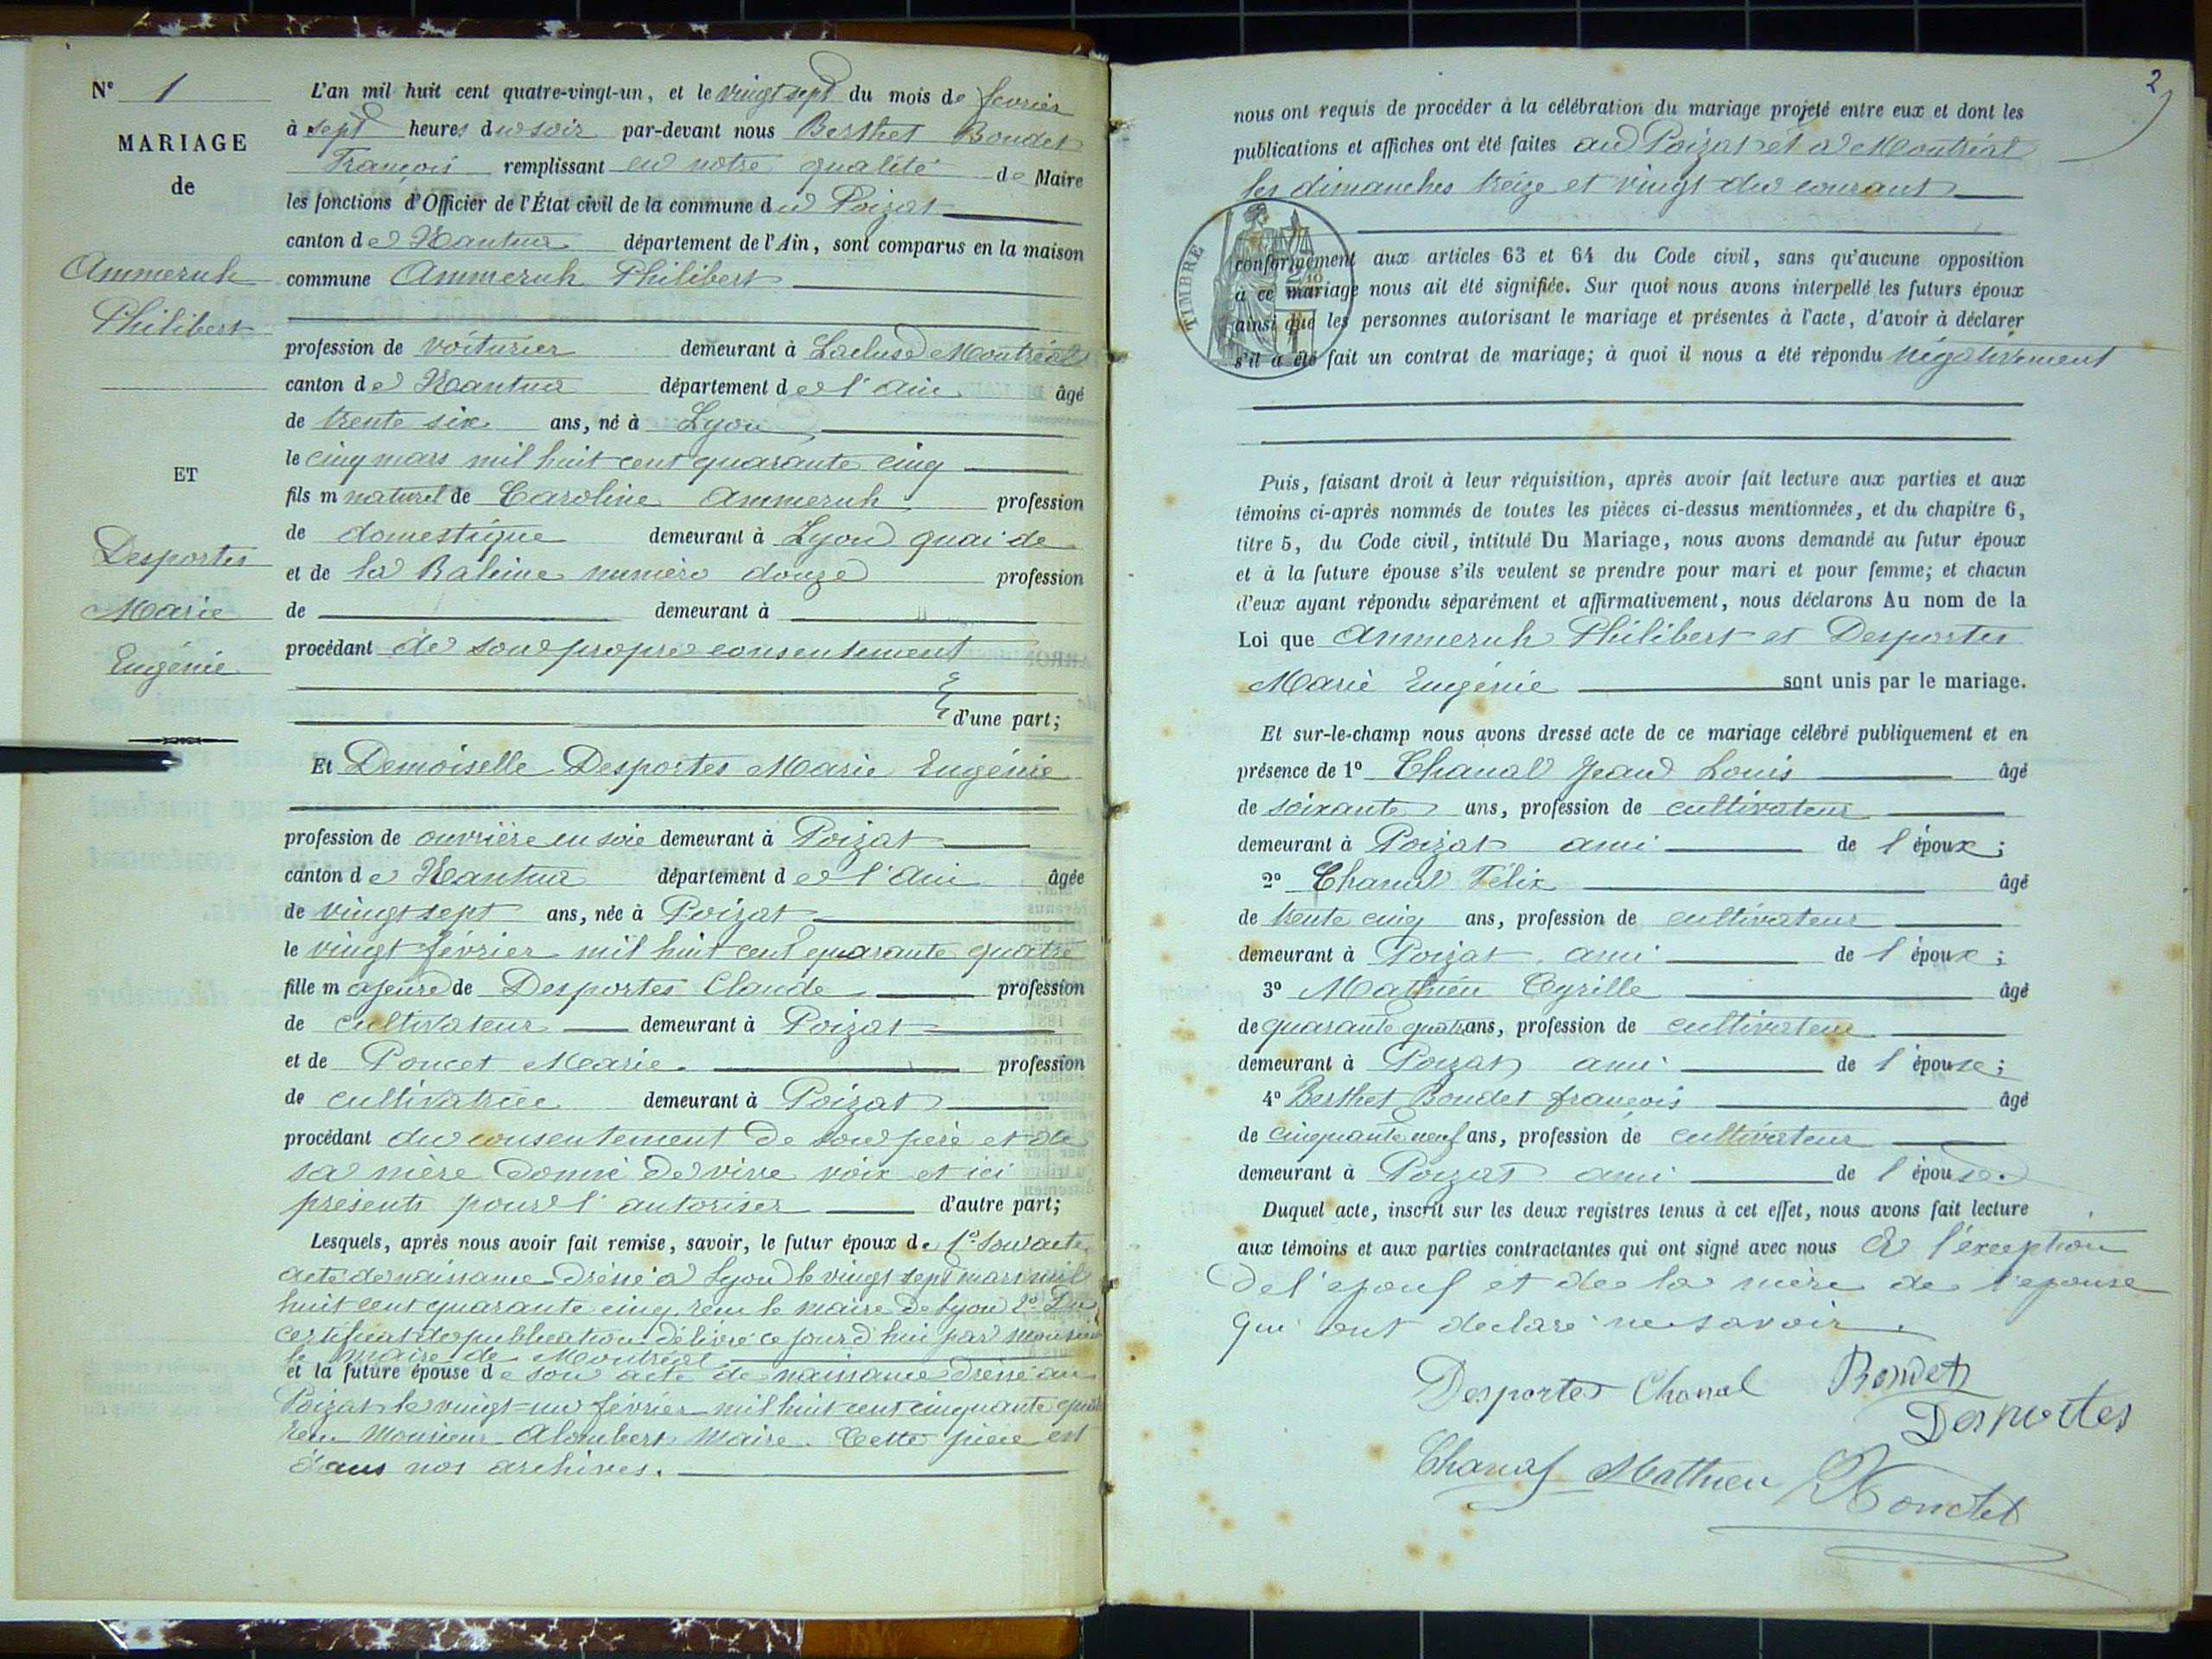 N° 1
MARIAGE
de
Ammeruh
Philibert
ET
Desportes
Marie
Eugénie
L'an mil huit cent quatre-vingt-un, et le vingt sept du mois de fevrier
à sept heures du soir par-devant nous Berthet Boudet
François remplissant en notre qualité de Maire
les fonctions d'Officier de l'État civil de la commune du Poizat
canton de Nantua département de l'Ain, sont comparus en la maison
commune Ammeruh Philibert
profession de voiturier demeurant à Lacluse Montréal
canton de Nantua département de l'ain âgé
de trente six ans, né à Lyon
le cinq mars mil huit cent quarante cinq
fils m naturel de Caroline Ammeruh profession
de domestique demeurant à Lyon quai de
et de la Baleine numèro douze profession
de demeurant à
procédant de son propre consentement
d'une part;
Et Demoiselle Desportes Marie Eugénie
profession de ouvrière en soie demeurant à Poizat
canton de Nantua département de l'ain âgée
de vingt sept ans, née à Poizat
le vingt février mil huit cent quarante quatre
fille majeure de Desportes Claude profession
de cultivateur demeurant à Poizat
et de Poncet Marie profession
de cultivatrice demeurant à Poizat
procédant du consentement de son père et de
sa mère donné de vive voix et ici
présents pour l'autoriser d'autre part;
Lesquels, après nous avoir fait remise, savoir, le futur époux de 1° son acte
acte de naissance dréssé a Lyon le vingt sept mars mil
huit cent quarante cinq, reçu le maire de Lyon 2° Du
certificat de publication délivré ce jourd'hui par monsieur
le maire de Montréal
et la future épouse de son acte de naissance dressé au
Poizat le vingt-un février mil huit cent cinquante quatre
reçu Monsieur Alombert Maire. Cette pièce est
dans nos archives.
2
nous ont requis de procéder à la célébration du mariage projeté entre eux et dont les
publications et affiches ont été faites au Poizat et à Montréal
les dimanches treize et vingt du courant
TIMBRE
conformément aux articles 63 et 64 du Code civil, sans qu'aucune opposition
à ce mariage nous ait été signifiée. Sur quoi nous avons interpellé les futurs époux
ainsi que les personnes autorisant le mariage et présentes à l'acte, d'avoir à déclarer
s'il a été fait un contrat de mariage; à quoi il nous a été répondu négativement
Puis, faisant droit à leur réquisition, après avoir fait lecture aux parties et aux
témoins ci-après nommés de toutes les pièces ci-dessus mentionnées, et du chapitre 6,
titre 5, du Code civil, intitulé Du Mariage, nous avons demandé au futur époux
et à la future épouse s'ils veulent se prendre pour mari et pour femme; et chacun
d'eux ayant répondu séparément et affirmativement, nous déclarons Au nom de la
Loi que Ammeruh Philibert et Desportes
Marie Eugénie sont unis par le mariage.
Et sur-le-champ nous avons dressé acte de ce mariage célébré publiquement et en
présence de 1° Chanal Jean Louis âgé
de soixante ans, profession de cultivateur
demeurant à Poizat ami de l'époux;
2° Chanal Félix âgé
de trente cinq ans, profession de cultivateur
demeurant à Poizat ami de l'époux;
3° Mathieu Cyrille âgé
de quarante quatre ans, profession de cultivateur
demeurant à Poizat ami de l'épouse;
4° Berthet Boudet françois âgé
de cinquante neuf ans, profession de cultivateur
demeurant à Poizat ami de l'épouse.
Duquel acte, inscrit sur les deux registres tenus à cet effet, nous avons fait lecture
aux témoins et aux parties contractantes qui ont signé avec nous à l'exception
de l'epoux et de la mère de l'epouse
qui ont declaré ne savoir.
Desportes Chanal Boudet
Desportes
Chanal Mathieu Boudet